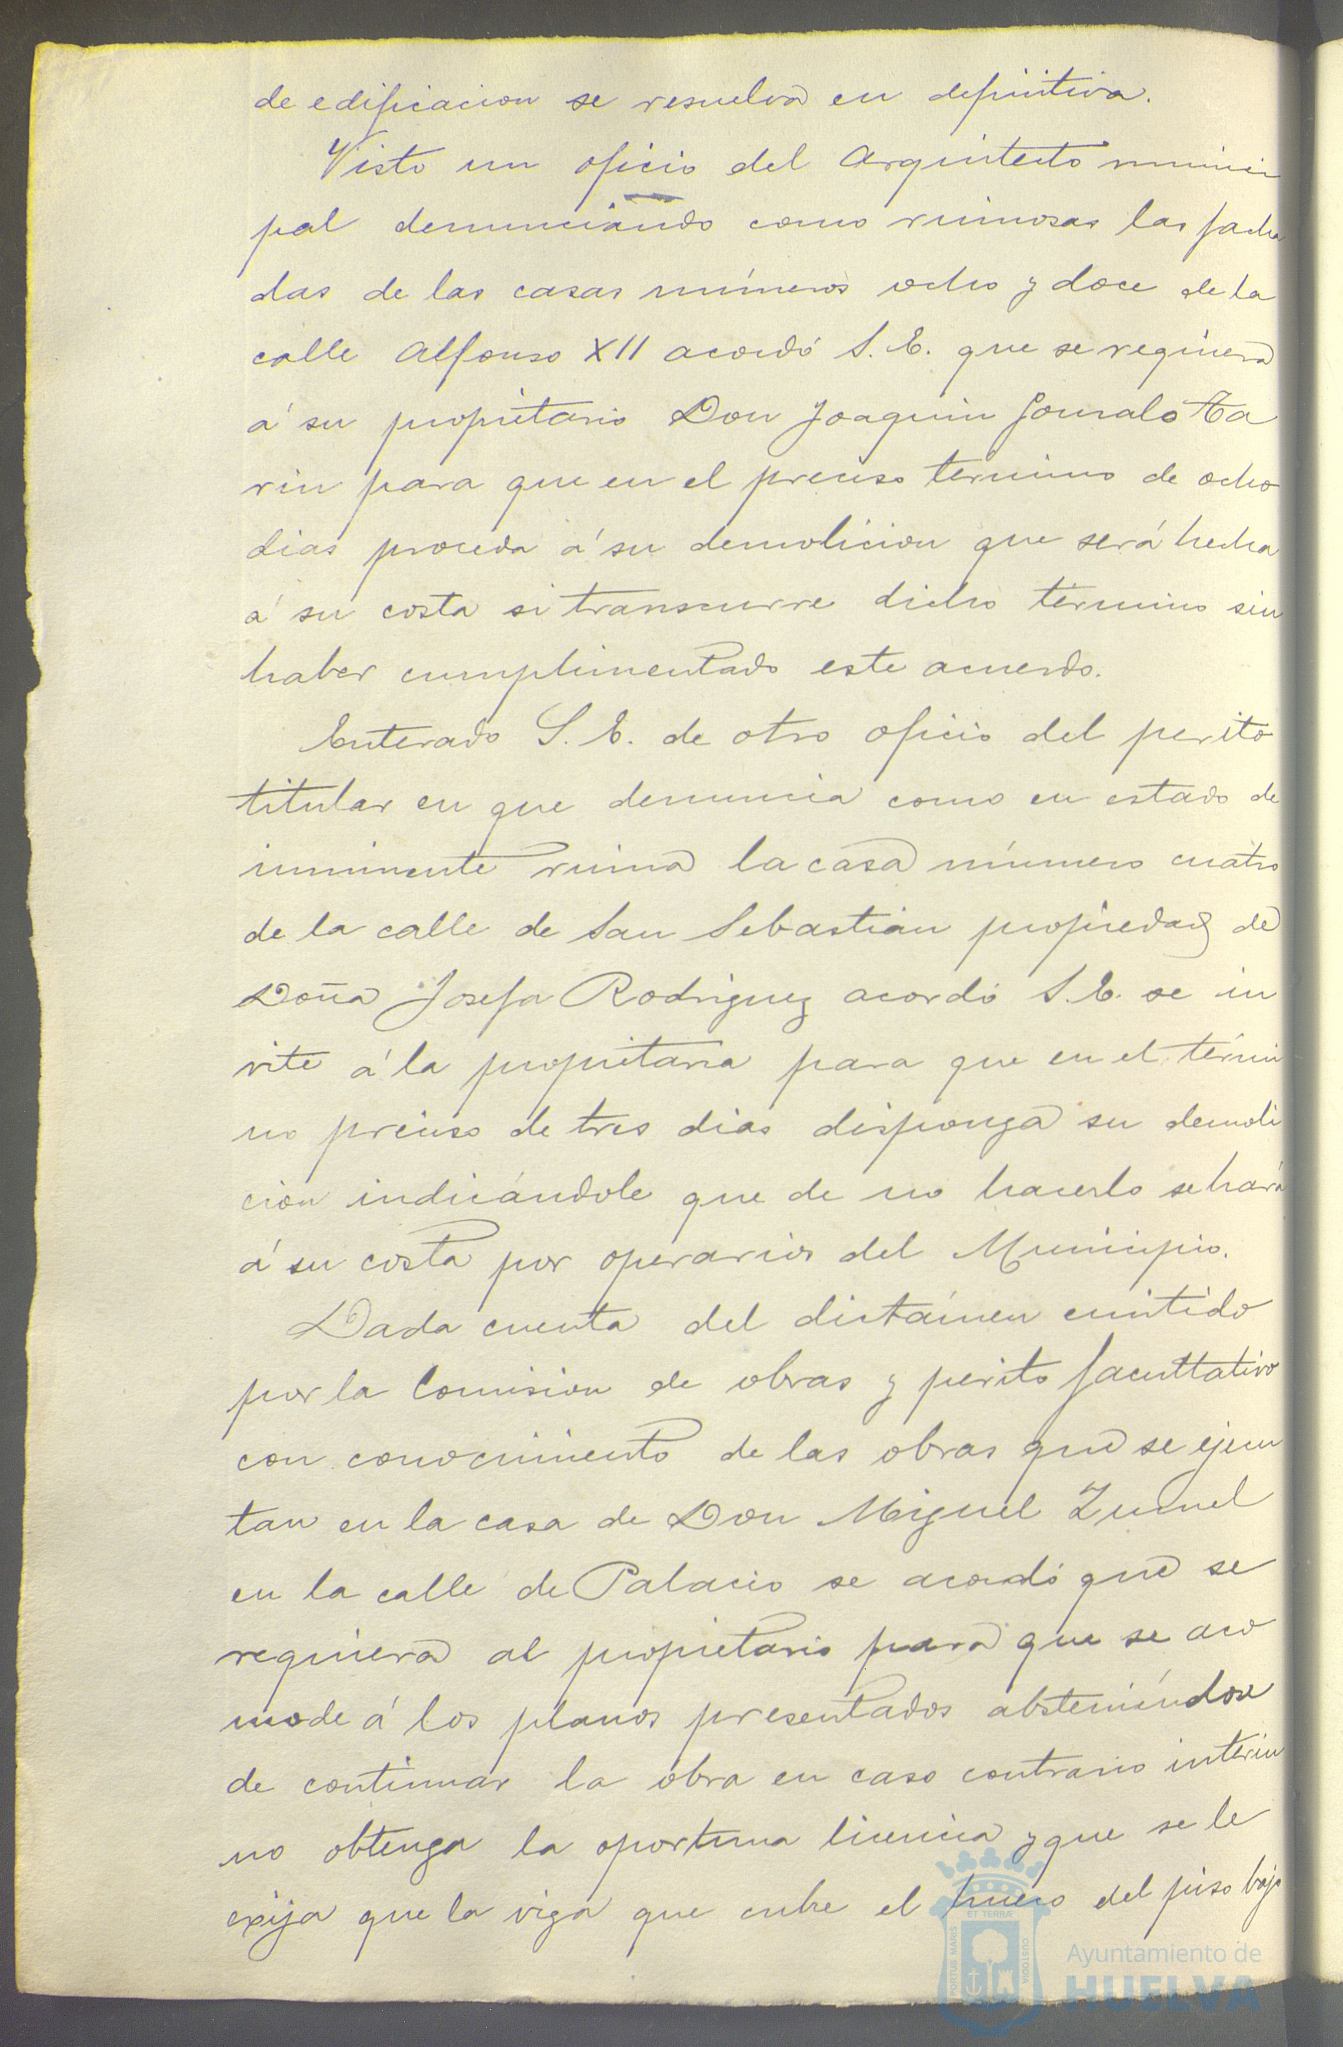 de edificacion se resuelva en definitiva.
Visto un oficio del Arquitecto munici
pal denunciando como ruinosas las facha
das de las casas números ocho y doce de la
calle Alfonso XII acordó S. E. que se requiera
á su propietario Don Joaquin Gonzalo Ta
rin para que en el preciso termino de ocho
dias proceda á su demolicion que será hecha
á su costa si transcurre dicho término sin
haber cumplimentado este acuerdo.
Enterado S. E. de otro oficio del perito
titular en que denuncia como en estado de
inminente ruina la casa número cuatro
de la calle de San Sebastian propiedad de
Doña Josefa Rodriguez acordó S. E. se in
vite á la propietaria para que en el térmi
no preciso de tres dias disponga su demoli
cion indicándole que de no hacerlo se hará
á su costa por operarios del Municipio.
Dada cuenta del dictámen emitido
por la Comision de obras y perito facultativo
con conocimiento de las obras que se ejecu
tan en la casa de Don Miguel Zunuel
en la calle de Palacio se acordó que se
requiera al propietario para que se aco
mode á los planos presentados absteniéndose
de continuar la obra en caso contrario interin
no obtenga la oportuna licencia y que se le
exija que la viga que cubre el hueco del piso bajo
PORTUS MARIS ET TERRÆ CUSTODIA
Ayuntamiento de
HUELVA